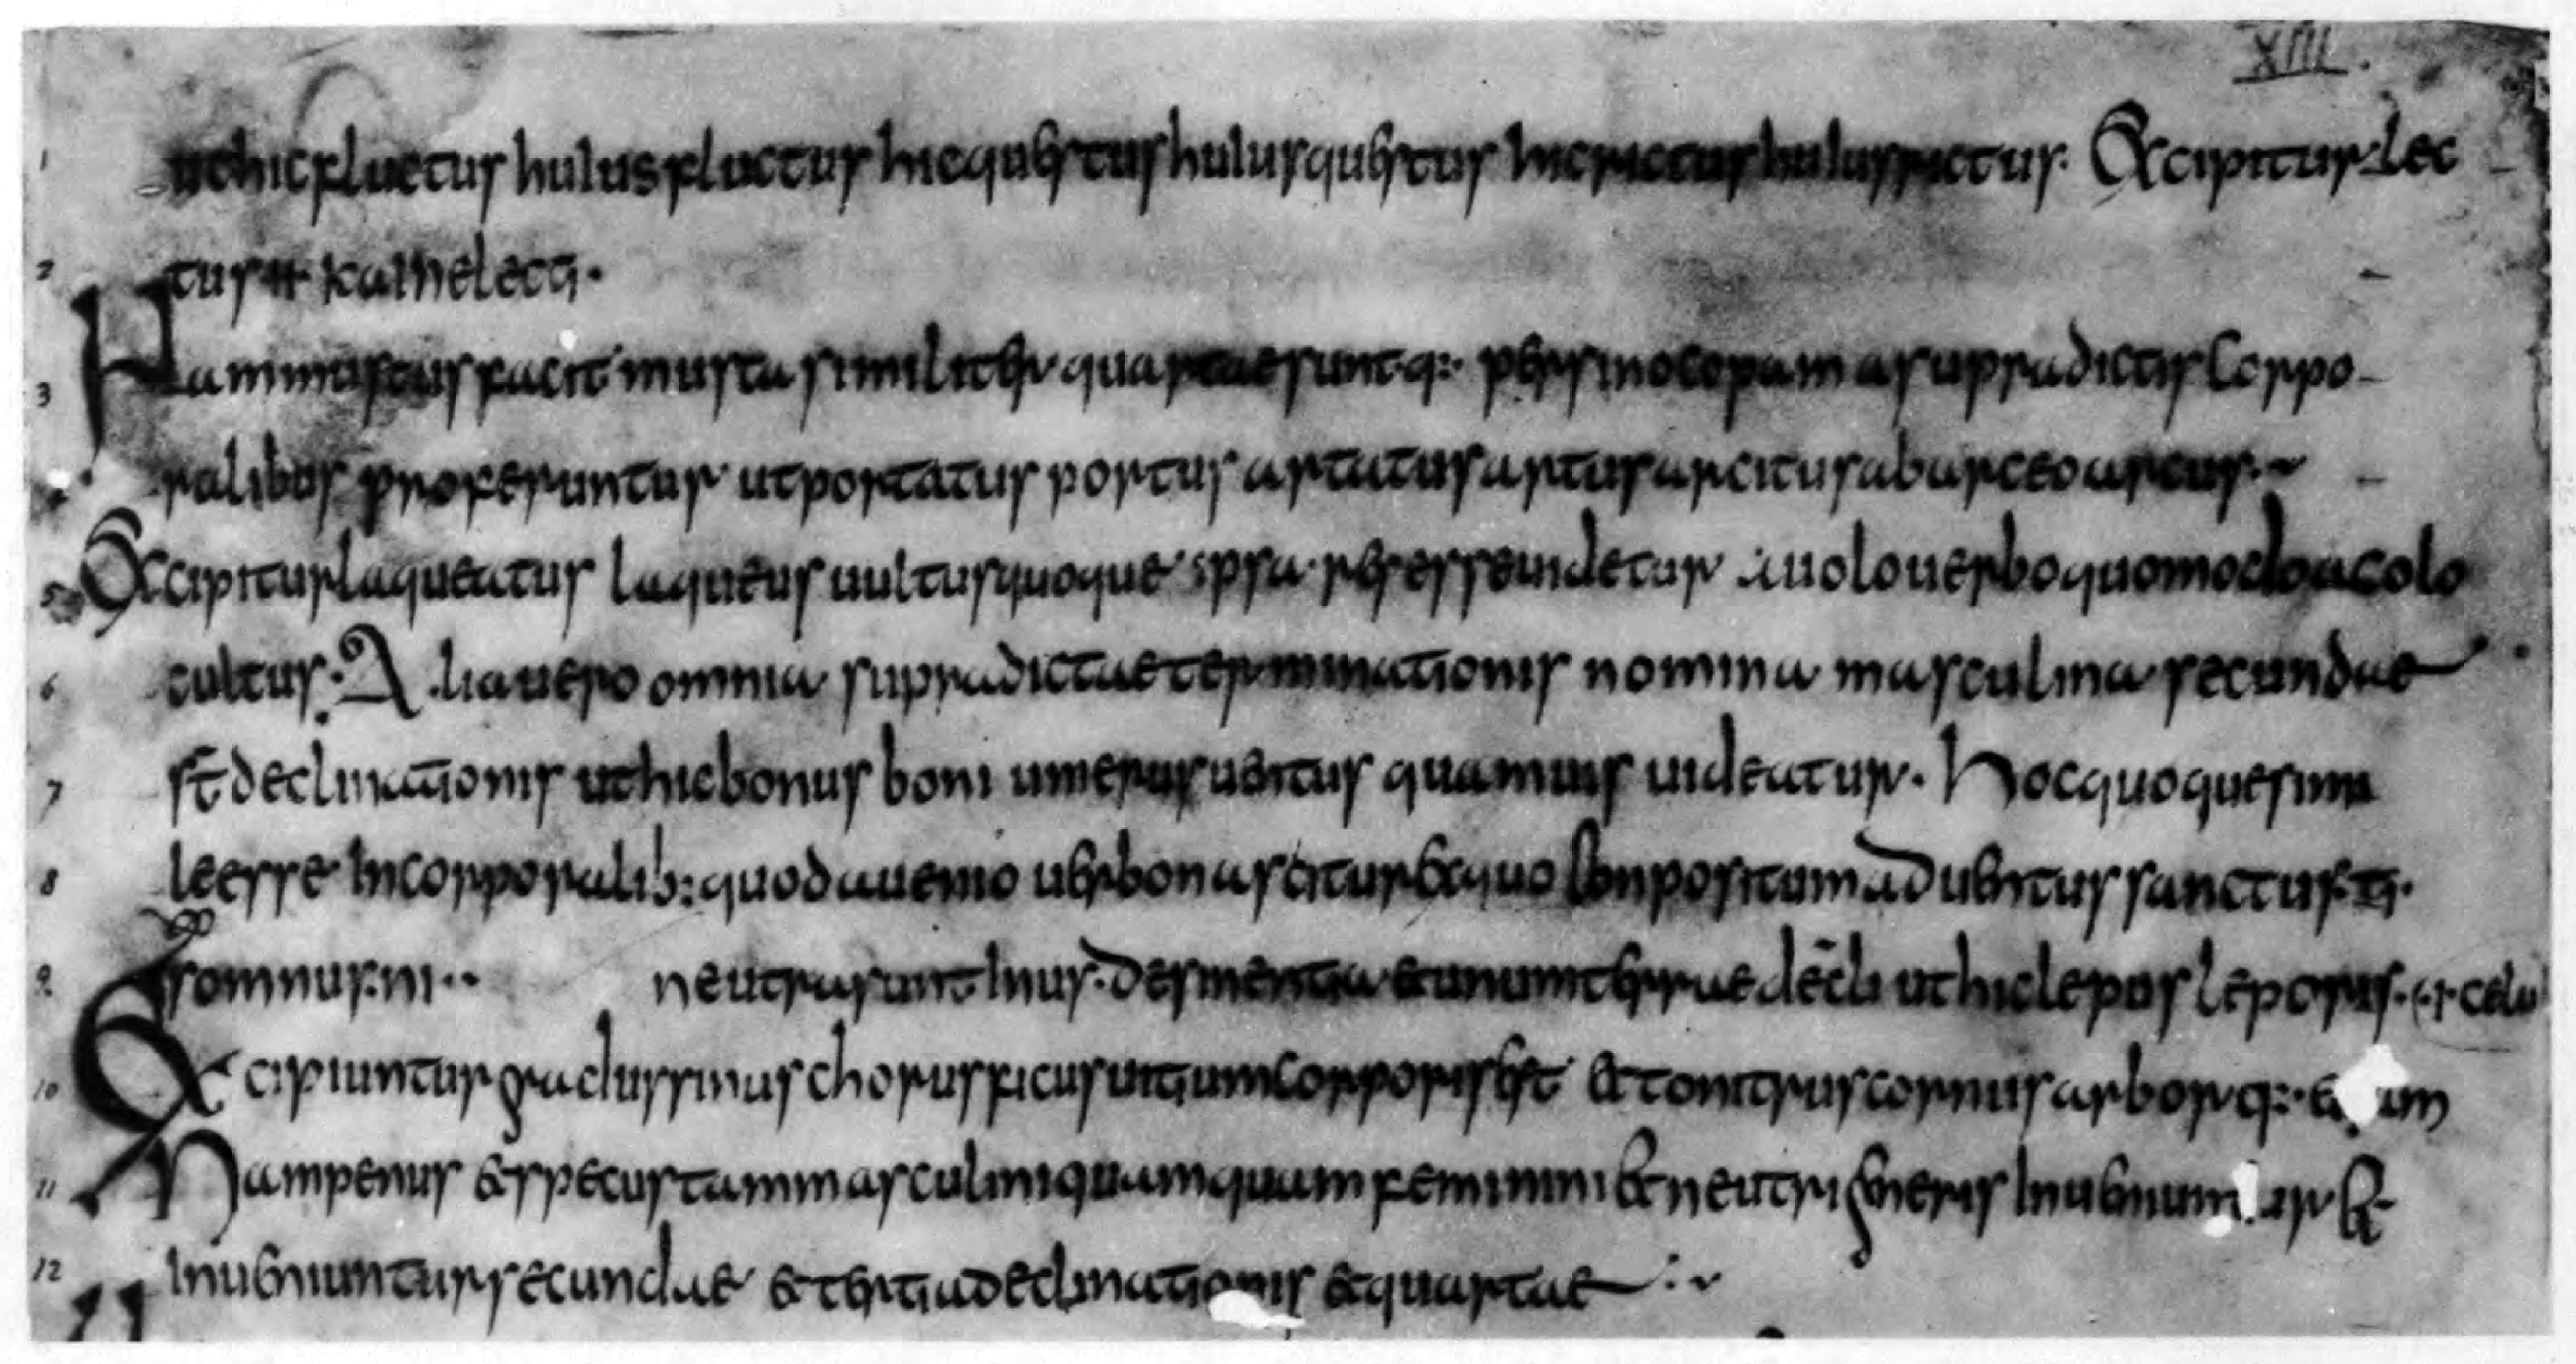 XIII.
1 uthicfluctus huius fluctus hic questus huius questus hic rictus huius rictus. Excipitur lec
2 tus ti kamelecti.
3 Nam mustus facit musta similiter quartae sunt q: per sinocopam a supradictis Corpo
4 ralibus proferuntur ut portatus portus artatus artus arcitus ab arceo arcus.
5 Excipitur laqueatus laqueus uultus quoque ipsa res esse uidetur a uolo uerbo quomodo a colo
6 cultus. Alia uero omnia supradictae terminationis nomina masculina secundae
7 st̄ declinationis ut hic bonus boni umerus uentus quamuis uideatur. Hoc quoque simi
8 le esse incorporalib: quod a uenio uerbo nascitur et quo Conpositum aduentus sanctus. ti.
9 somnus. ni. neutra sunt in us. desinentia et unum terrae decli ut hic lepus leporus.
10 Excipiuntur gradus sinus chorus ficus uitium corporis et tonitrus cornus arbor q:
11 Nam penus et specus tam masculini quam quam feminini et neutri generis inueniun ar et
12 inueniuntur secundae et tertia declinationis et quartae